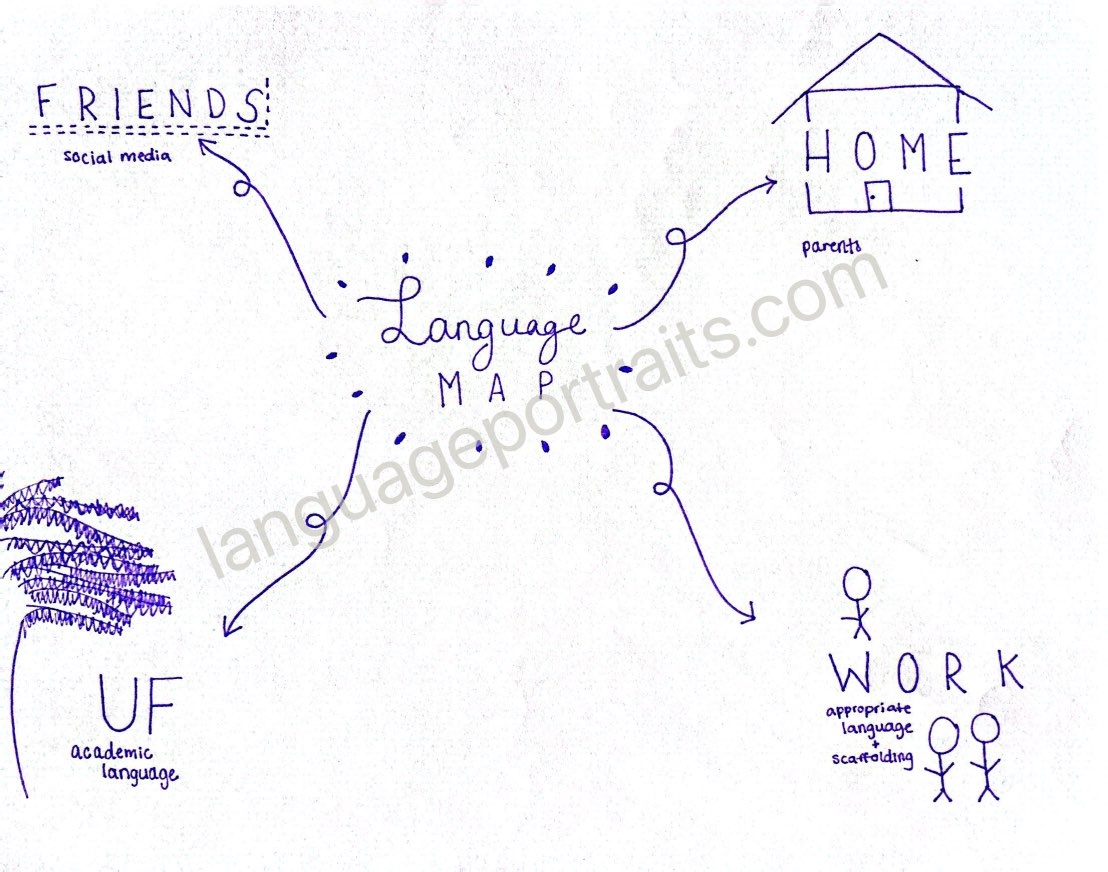 FRIENDS
social media
HOME
parents
Language
MAP
UF
academic
language
WORK
appropriate
language
+
scaffolding
languageportraits.com